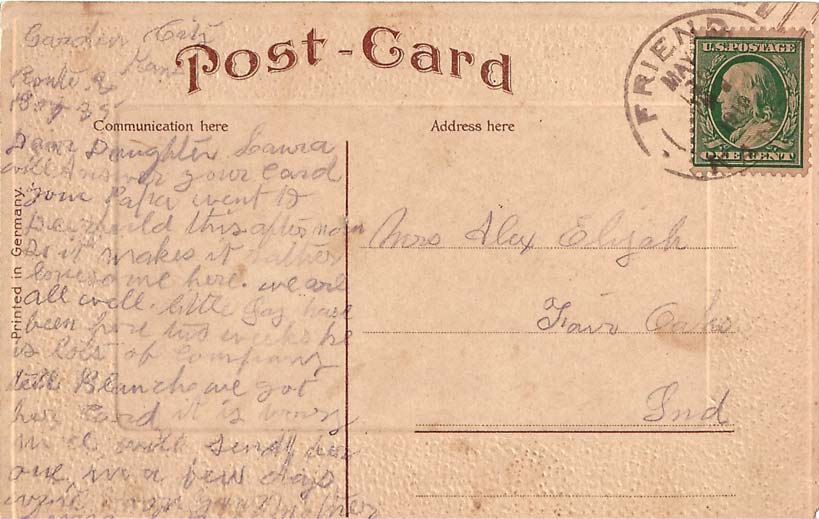 Garden City
Kans
Route 2
Box 35
Post-Card
Communication here
Address here
Dear Daughter Laura
will Answer your Card
your Papa went to
Deerfield this after noon
So it makes it rather
lonesome here. we are
all well. little Jay have
been here two weeks he
is lots of Company
tell Blanch we got
her Card it is very
will send her
one in a few days
Mother
Mrs Alex Elijah
Fair Oaks
Ind
Printed in Germany.
FRIEND
MAY
U.S. POSTAGE
ONE CENT